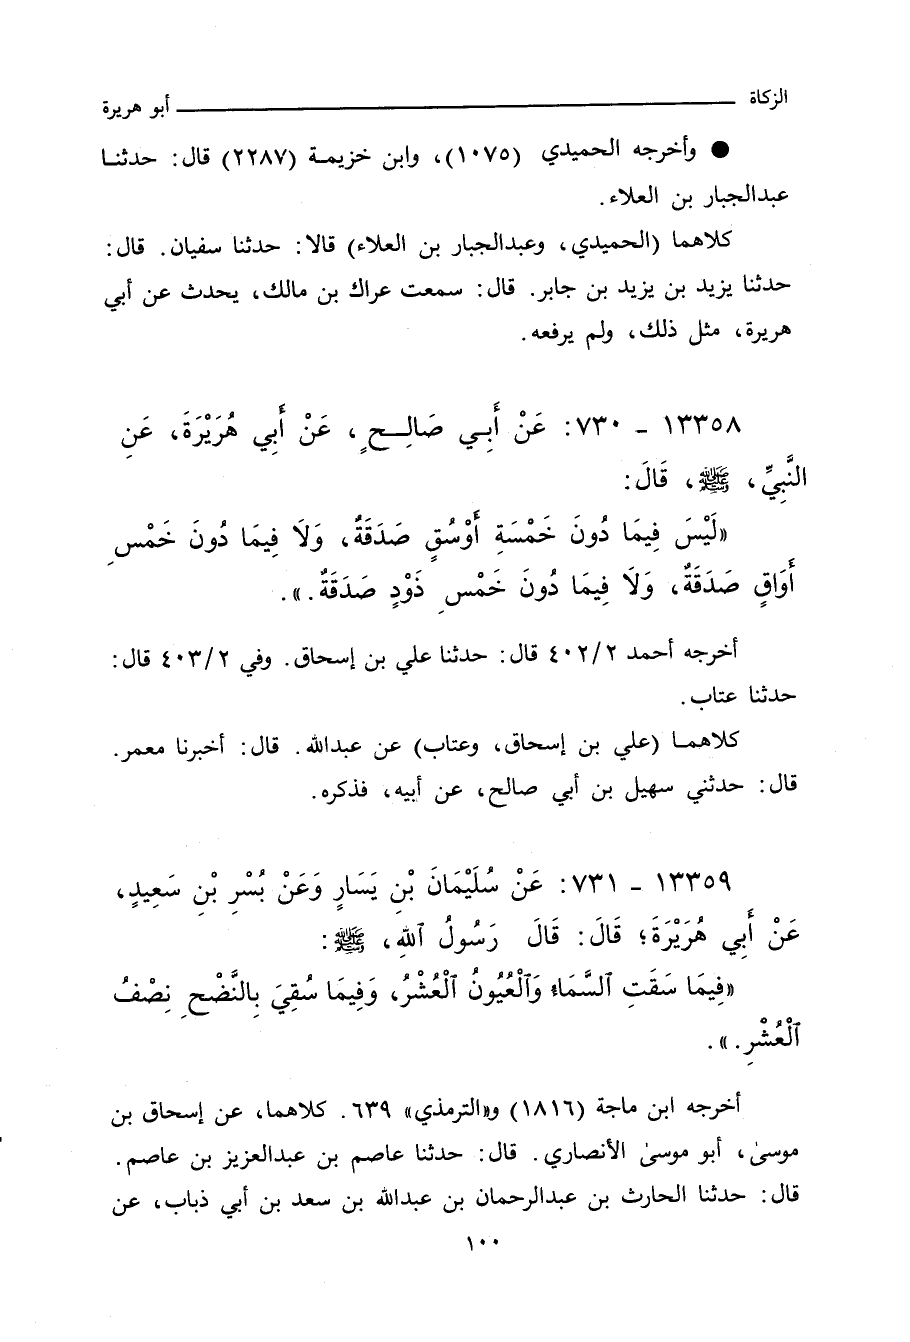 الزكاة أبو هريرة
● وأخرجه الحميدي (١٠٧٥)، وابن خزيمة (٢٢٨٧) قال: حدثنا
عبدالجبار بن العلاء.
كلاهما (الحميدي، وعبدالجبار بن العلاء) قالا: حدثنا سفيان. قال:
حدثنا يزيد بن يزيد بن جابر. قال: سمعت عراك بن مالك، يحدث عن أبي
هريرة، مثل ذلك، ولم يرفعه.
١٣٣٥٨ - ٧٣٠: عَنْ أَبِي صَالِحٍ، عَنْ أَبِي هُرَيْرَةَ، عَنِ
النَّبِيِّ، ﷺ، قَالَ:
«لَيْسَ فِيمَا دُونَ خَمْسَةِ أَوْسُقٍ صَدَقَةٌ، وَلَا فِيمَا دُونَ خَمْسِ
أَوَاقٍ صَدَقَةٌ، وَلَا فِيمَا دُونَ خَمْسِ ذَوْدٍ صَدَقَةٌ.».
أخرجه أحمد ٤٠٢/٢ قال: حدثنا علي بن إسحاق. وفي ٤٠٣/٢ قال:
حدثنا عتاب.
كلاهما (علي بن إسحاق، وعتاب) عن عبدالله. قال: أخبرنا معمر.
قال: حدثني سهيل بن أبي صالح، عن أبيه، فذكره.
١٣٣٥٩ - ٧٣١: عَنْ سُلَيْمَانَ بْنِ يَسَارٍ وَعَنْ بُسْرِ بْنِ سَعِيدٍ،
عَنْ أَبِي هُرَيْرَةَ؛ قَالَ: قَالَ رَسُولُ ٱللهِ، ﷺ:
«فِيمَا سَقَتِ ٱلسَّمَاءُ وَٱلْعُيُونُ ٱلْعُشْرُ، وَفِيمَا سُقِيَ بِالنَّضْحِ نِصْفُ
ٱلْعُشْرِ.».
أخرجه ابن ماجة (١٨١٦) و«الترمذي» ٦٣٩. كلاهما، عن إسحاق بن
موسىٰ، أبو موسىٰ الأنصاري. قال: حدثنا عاصم بن عبدالعزيز بن عاصم.
قال: حدثنا الحارث بن عبدالرحمان بن عبدالله بن سعد بن أبي ذباب، عن
١٠٠